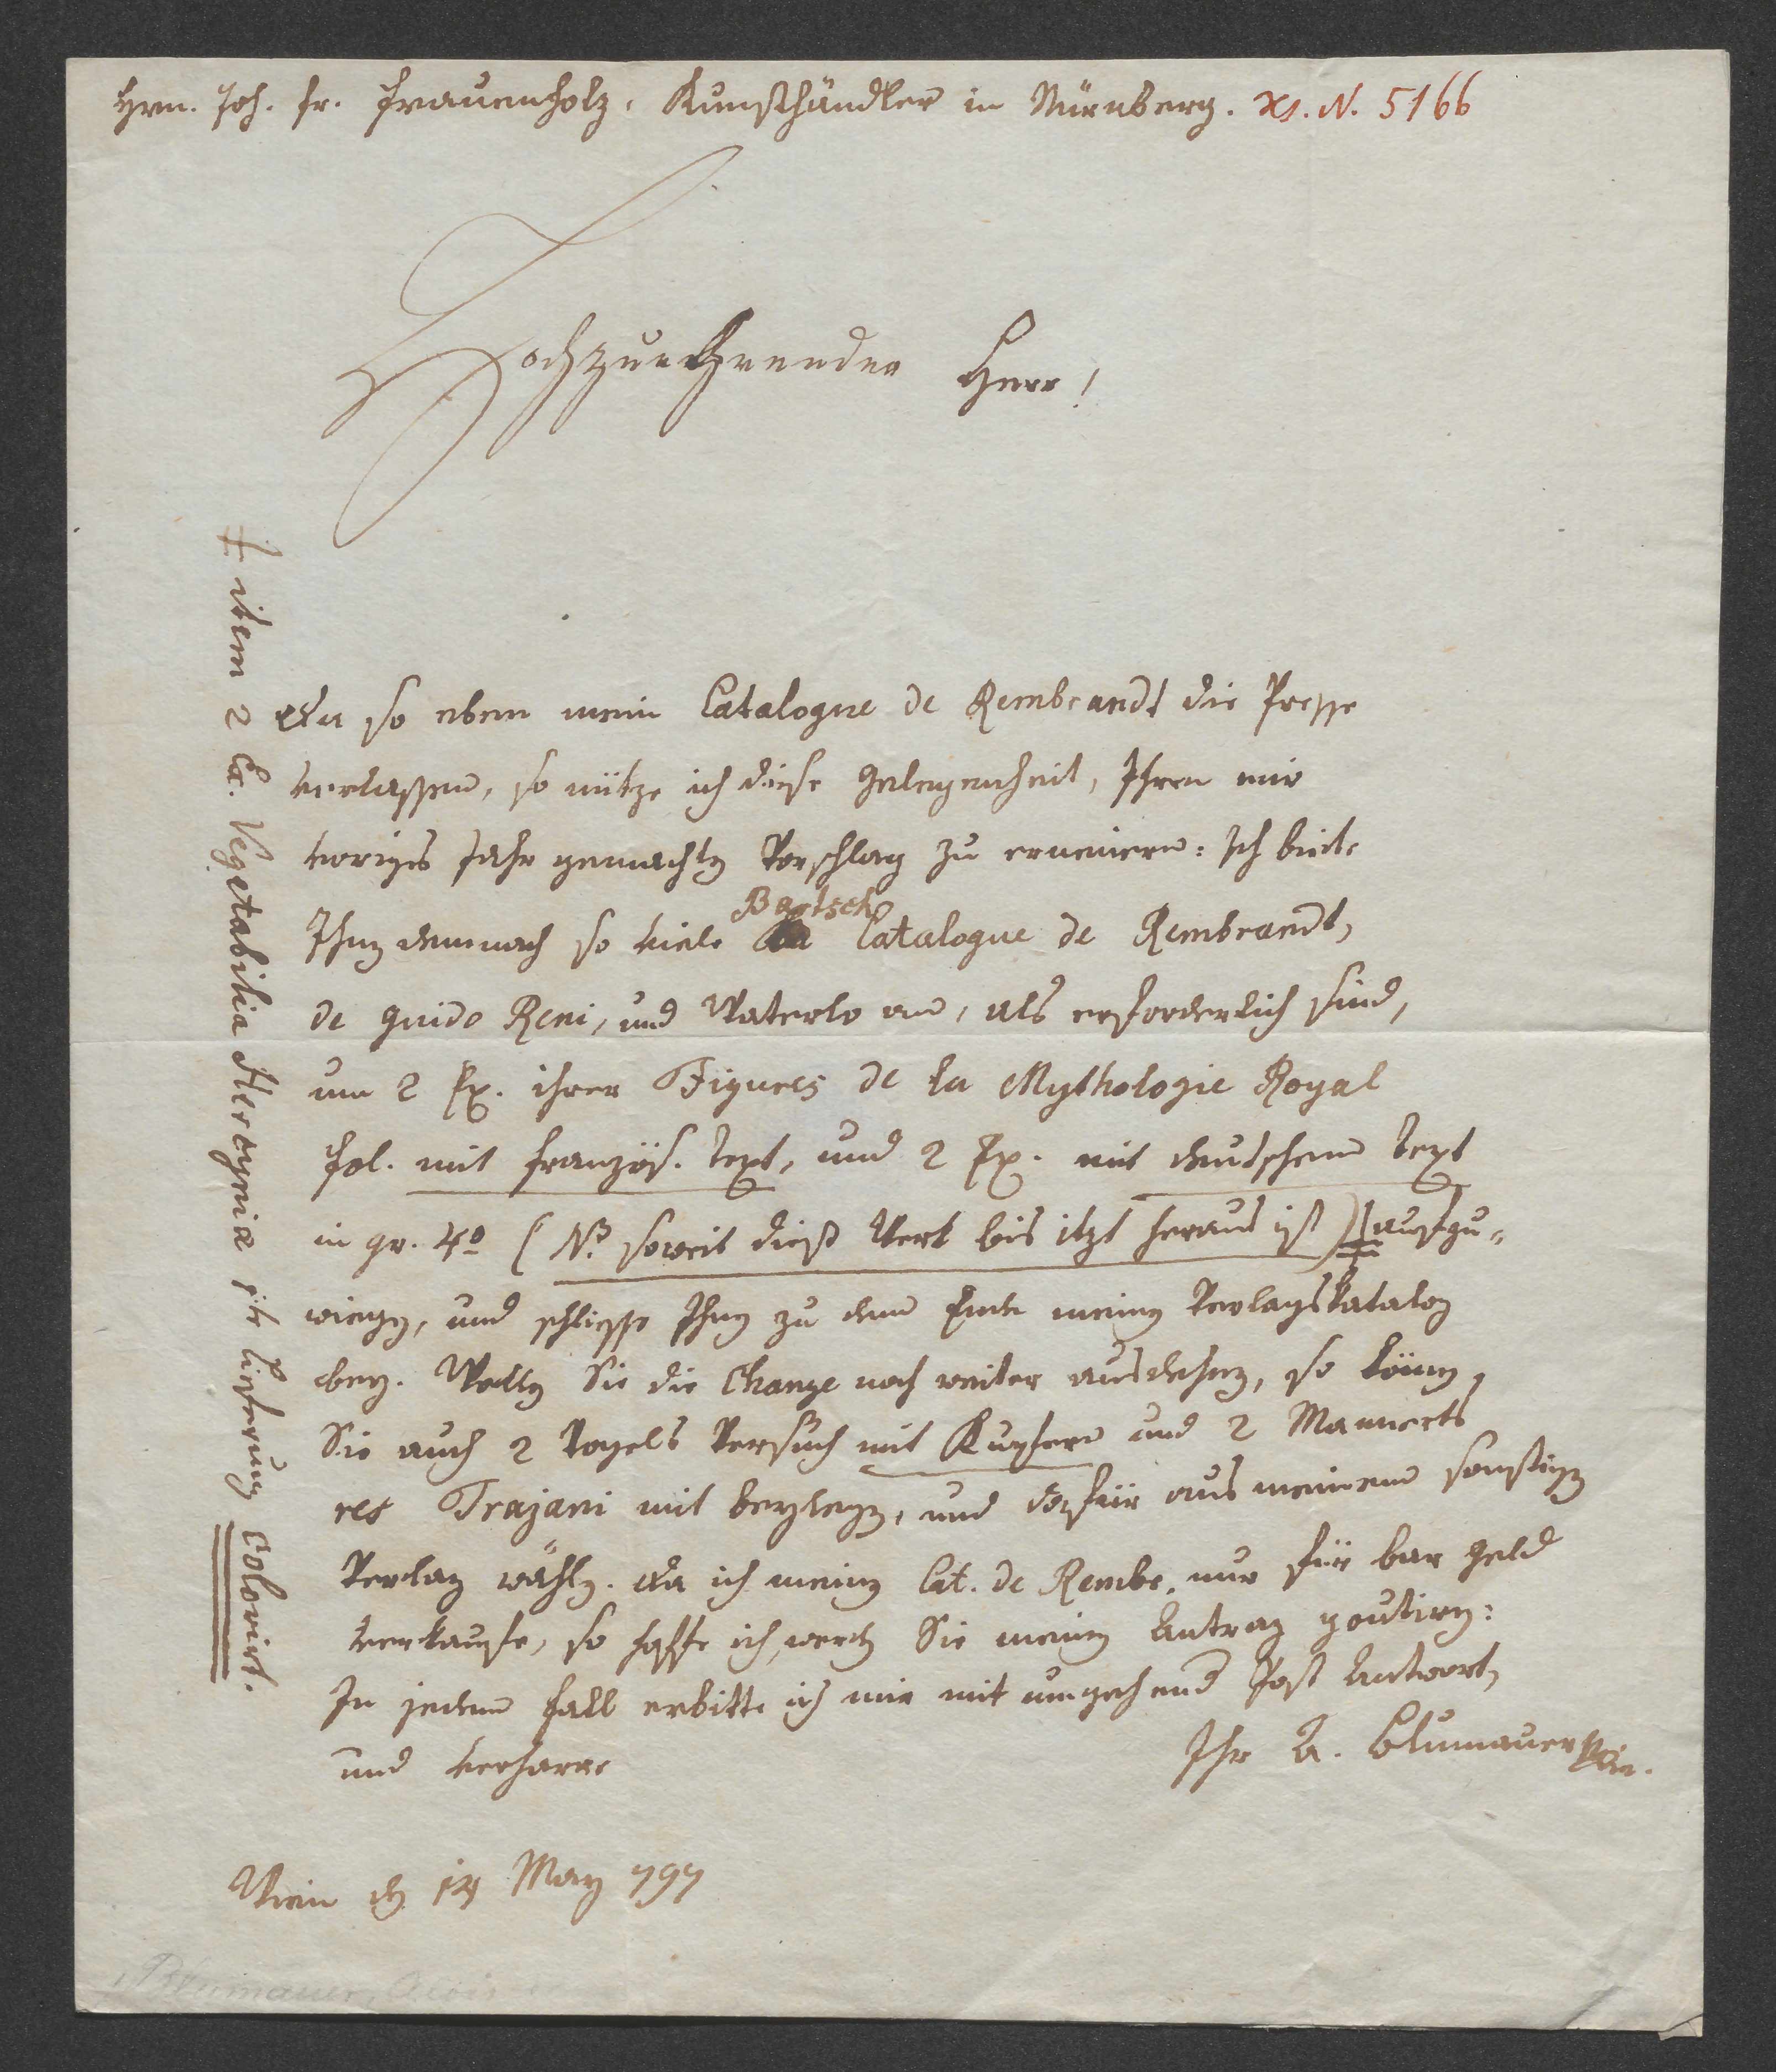 Hrn. Joh. Fr. Frauenholz, Kunsthändler in Nürnberg. N. 5166
Hochzuehrender Herr!
Da so eben mein Catalogue de Rembrandt die Presse
verlassen, so nütze ich diese Gelegenheit, Ihren mir
voriges Jahr gemachten Vorschlag zu erneuern: Ich biete
Bartsch
Ihnen demnach so viele Catalogue de Rembrandt,
de Guido Reni, und Waterlo an, als erforderlich sind,
um 2 Ex. ihrer Figures de la Mythologie Royal
fol. mit französ. Text, und 2 Ex. mit deutschem Text
in gr. 4º (NB soweit dieß Werk bis itzt heraus ist) ‡ aufzu-
wiegen, und schliesse Ihnen zu dem Ende meinen Verlagskatalog
bey. Wollen Sie die Change noch weiter ausdehnen, so können
Sie auch 2 Vogels Versuch mit Kupfern und 2 Mannerts
res Trajani mit beylegen, und dafür aus meinem sonstigen
Verlag wählen. Da ich meinen Cat. de Rembr. nur für bar Geld
verkaufe, so hoffe ich, werden Sie meinen Antrag goutiren:
In jedem Fall erbitte ich mir mit umgehend Post Antwort,
und verharre
Ihr A. Blumauer
Wien den 14 May 797
‡ item 2 Ex. Vegetabilia Hercyniæ Lieferung Colorirt.
Blumauer, Alois